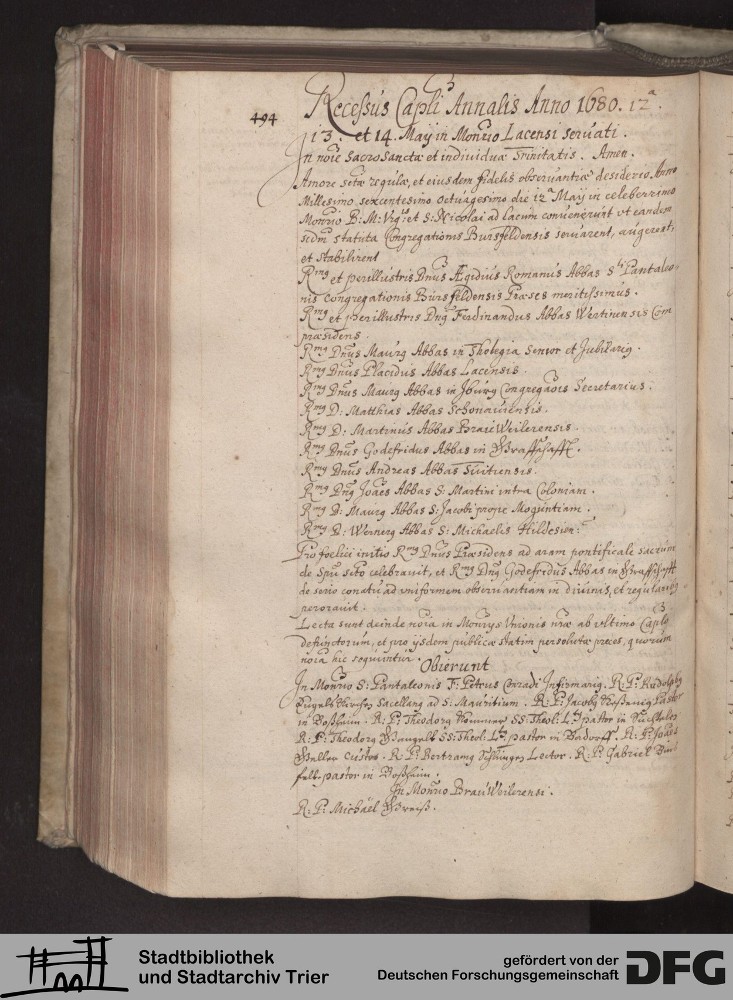 494
Recessus Capli Annalis Anno 1680. 12a.
13. et 14. May in Monrio Lacensi seruati.
In noie Sacrosanctæ et individuæ Trinitatis. Amen.
Amore sctæ regulæ, et eiusdem fidelis obseruantiæ desiderio Anno
Millesimo sexcentesimo octuagesimo die 12a May in celeberrimo
Monrio B: M: Vrgis et S: Nicolai ad Lacum convenerunt vt eandem
scdm statuta Congregationis Bursfeldensis seruarent, augerent
et stabilirent
Rmg et perillustris Dnus Ægidius Romanus Abbas Sti Pantaleo-
nis Congregationis Bursfeldensis Præses meritissimus.
Rmg et perillustris Dng Ferdinandus Abbas Wertinensis Com
præsidens
Rmg Dnus Maurg Abbas in Tholegia Senior et Jubilarig.
Rmg Dnus Placidus Abbas Lacensis.
Rmg Dnus Maurg Abbas in Jburg Congregaois Secretarius.
Rmg D: Matthias Abbas Schonauiensis.
Rmg D: Martinus Abbas BrauWeilerensis.
Rmg Dnus Godefridus Abbas in Graffschafft.
Rmg Dnus Andreas Abbas Tuitiensis.
Rmg Dng Joaes Abbas S: Martini intra Coloniam.
Rmg D: Maurg Abbas S: Jacobi prope Moguntiam.
Rmg D: Wernerg Abbas S: Michaelis Hildesien:
Pro foelici initio Rmg Dnus Præsidens ad aram pontificale sacrum
de Spu scto celebrauit, et Rmg Dng Godefridus Abbas in Graffschafft
de serio conatu ad vniformem obseruantiam in diuinis, et regularib
perorauit.
Lecta sunt deinde noia in Monrys Vnionis nræ ab vltimo Caplo
defunctorum, et pro ijsdem publicæ statim persolutæ preces, quorum
noia hic sequuntur. Obierunt
In Monrio S: Pantaleonis F: Petrus Conradi Infirmarig. R: P: Rudolphg
Sacellang ad S: Mauritium. R: P: Jacobg Pastor
in Boßheim. R: P: Theodorg SS: Theol: Ltg pastor in Suchtelen
R: P: Theodorg SS: Theol: Ltg pastor in Badorff. R: P: Joaes
Custos. R: P: Bertramg Lector. R: P: Gabriel
felt pastor in Boßheim.
In Monrio BrauWeilerensi.
R: P: Michael Greiß.
Stadtbibliothek
und Stadtarchiv Trier
gefördert von der
Deutschen Forschungsgemeinschaft
DFG